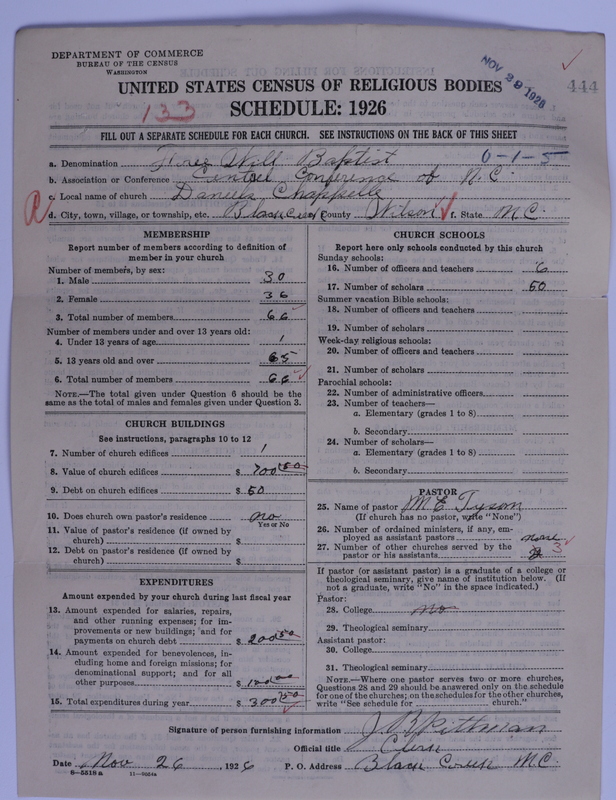 DEPARTMENT OF COMMERCE
BUREAU OF THE CENSUS
WASHINGTON
NOV 29 1926
444
UNITED STATES CENSUS OF RELIGIOUS BODIES
133
SCHEDULE: 1926
FILL OUT A SEPARATE SCHEDULE FOR EACH CHURCH. SEE INSTRUCTIONS ON THE BACK OF THIS SHEET
a. Denomination Free Will Baptist 0-1-5
b. Association or Conference Central Conference of N.C.
c. Local name of church Daniels Chappelle
d. City, town, village, or township, etc. Black Creek County Wilson f. State N.C.
MEMBERSHIP
Report number of members according to definition of
member in your church
Number of members, by sex:
1. Male 30
2. Female 36
3. Total number of members 66
Number of members under and over 13 years old:
4. Under 13 years of age 1
5. 13 years old and over 65
6. Total number of members 66
NOTE.—The total given under Question 6 should be
same as the total of males and females given under Question 3.
CHURCH BUILDINGS
See instructions, paragraphs 10 to 12
7. Number of church edifices 1
8. Value of church edifices $ 700
9. Debt on church edifices $ 50
10. Does church own pastor's residence no
Yes or No
11. Value of pastor's residence (if owned by
church) $
12. Debt on pastor's residence (if owned by
church) $
EXPENDITURES
Amount expended by your church during last fiscal year
13. Amount expended for salaries, repairs,
and other running expenses; for im-
provements or new buildings; and for
payments on church debt $ 200
14. Amount expended for benevolences, in-
cluding home and foreign missions; for
denominational support; and for all
other purposes $ 100
15. Total expenditures during year $ 300
CHURCH SCHOOLS
Report here only schools conducted by this church
Sunday schools:
16. Number of officers and teachers 6
17. Number of scholars 50
Summer vacation Bible schools:
18. Number of officers and teachers
19. Number of scholars
Week-day religious schools:
20. Number of officers and teachers
21. Number of scholars
Parochial schools:
22. Number of administrative officers
23. Number of teachers—
a. Elementary (grades 1 to 8)
b. Secondary
24. Number of scholars—
a. Elementary (grades 1 to 8)
b. Secondary
PASTOR
25. Name of pastor M E Tyson
(If church has no pastor, write "None")
26. Number of ordained ministers, if any, em-
ployed as assistant pastors none
27. Number of other churches served by the
pastor or his assistants 3
If pastor (or assistant pastor) is a graduate of a college or
theological seminary, give name of institution below. (If
not a graduate, write "No" in the space indicated.)
Pastor:
28. College no
29. Theological seminary
Assistant pastor:
30. College
31. Theological seminary
NOTE.—Where one pastor serves two or more churches,
Questions 28 and 29 should be answered only on the schedule
for one of the churches; on the schedules for the other churches,
write "See schedule for church."
Signature of person furnishing information J. B.
Official title Clerk
Date Nov 26, 1926 P. O. Address Black Creek N.C.
8-5518a 11-9024a